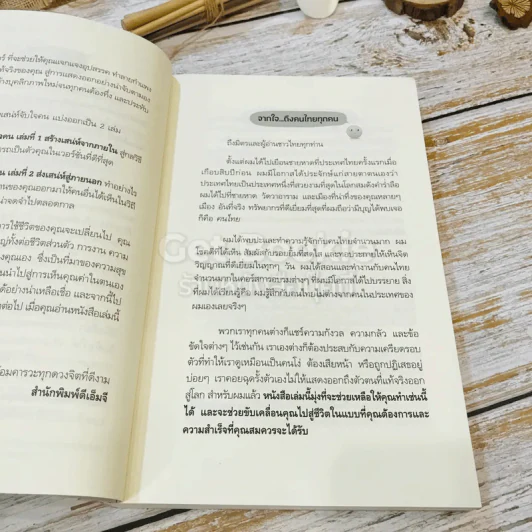 ที่จะช่วยให้คุณแจกแจงอุปสรรค ทำลายกำแพง
เสน่ห์จับใจคน แบ่งออกเป็น 2 เล่ม
เล่มที่ 1 สร้างเสน่ห์จากภายใน
เล่มที่ 2 ส่งเสน่ห์สู่ภายนอก ทำอย่างไร
ของคุณออกมาให้คนอื่นได้เห็นในวิถี
น่าจดจำไปตลอดกาล
ใช้ชีวิตของคุณจะเปลี่ยนไป คุณ
ทั้งต่อชีวิตส่วนตัว การงาน ความ
ของคุณเอง ซึ่งเป็นที่มาของความสุข
นำไปสู่การเห็นคุณค่าในตนเอง
ได้อย่างน่าเหลือเชื่อ และจากนี้ไป
ต่อไป เมื่อคุณอ่านหนังสือเล่มนี้
ด้วยความคารวะทุกดวงจิตที่ดีงาม
สำนักพิมพ์ดีเอ็มจี
จากใจ...ถึงคนไทยทุกคน
ถึงมิตรและผู้อ่านชาวไทยทุกท่าน
ตั้งแต่ผมได้ไปเยือนชายหาดที่ประเทศไทยครั้งแรกเมื่อ
เกือบสิบปีก่อน ผมมีโอกาสได้ประจักษ์แก่สายตาตนเองว่า
ประเทศไทยเป็นประเทศหนึ่งที่สวยงามที่สุดในโลกสมดังคำร่ำลือ
ผมได้ไปที่ชายหาด วัดวาอาราม และเมืองที่น่าทึ่งของคุณหลายๆ
เมือง อันที่จริง ทรัพยากรที่ดีเยี่ยมที่สุดที่ผมถือว่ามีบุญได้พบเจอ
ก็คือ คนไทย
ผมได้พบปะและทำความรู้จักกับคนไทยจำนวนมาก ผม
โชคดีที่ได้เห็น สัมผัสกับรอยยิ้มที่สดใส และทุกประกายให้เห็นจิต
วิญญาณที่ดีเยี่ยมในทุกๆ วัน ผมได้สอนและทำงานกับคนไทย
จำนวนมากในคอร์สการอบรมต่างๆ ที่ผมมีโอกาสได้ไปบรรยาย สิ่ง
ที่ผมได้เรียนรู้คือ ผมรู้สึกรักคนไทยไม่ต่างจากคนในประเทศของ
ผมเองเลยจริงๆ
พวกเราทุกคนต่างก็แชร์ความกังวล ความกลัว และข้อ
ขัดใจต่างๆ ไว้เช่นกัน เราเองต่างก็ต้องประสบกับความเครียดรอบ
ตัวที่ทำให้เราดูเหมือนเป็นคนโง่ ต้องเสียหน้า หรือถูกปฏิเสธอยู่
บ่อยๆ เราคอยฉุดรั้งตัวเองไม่ให้แสดงออกถึงตัวตนที่แท้จริงออก
สู่โลก สำหรับผมแล้ว หนังสือเล่มนี้มุ่งที่จะช่วยเหลือให้คุณทำเช่นนี้
ได้ และจะช่วยขับเคลื่อนคุณไปสู่ชีวิตในแบบที่คุณต้องการและ
ความสำเร็จที่คุณสมควรจะได้รับ